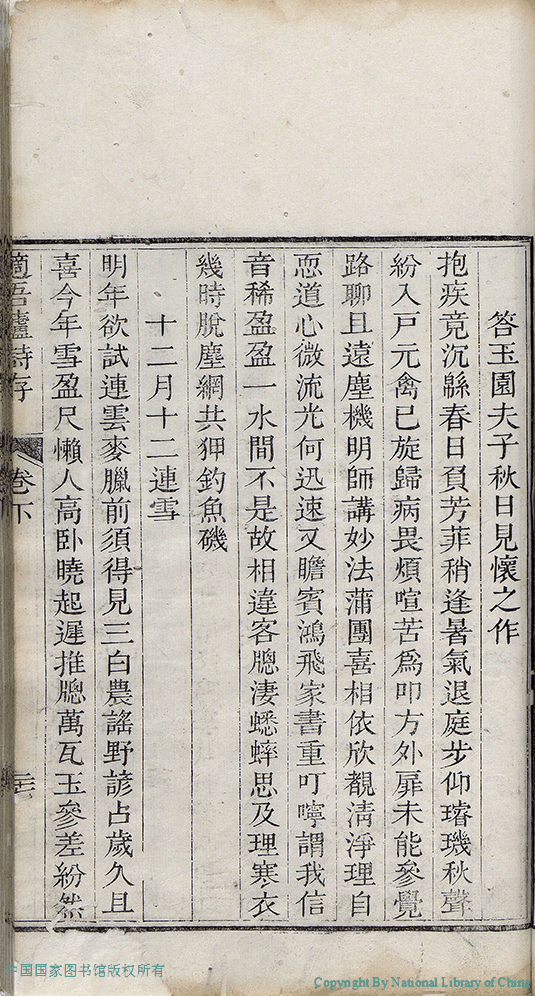 答玉園夫子秋日見懷之作
抱疾竟沉緜春日負芳菲稍逢暑氣退庭步仰璿璣秋聲
紛入戶元禽巳旋歸病畏煩喧苦爲叩方外扉未能參覺
路聊且遠塵機明師講妙法蒲團喜相依欣觀淸淨理自
恧道心微流光何迅速又瞻賓鴻飛家書重叮嚀謂我信
音稀盈盈一水間不是故相違客牎淒蟋蟀思及理寒衣
幾時脫塵網共狎釣魚磯
十二月十二連雪
明年欲試連雲麥臘前須得見三白農謠野諺占歲久且
喜今年雪盈尺懶人高卧曉起遲推牎萬瓦玉參差紛然
適吾廬詩存 卷下
中国国家图书馆版权所有
Copyright By National Library of China